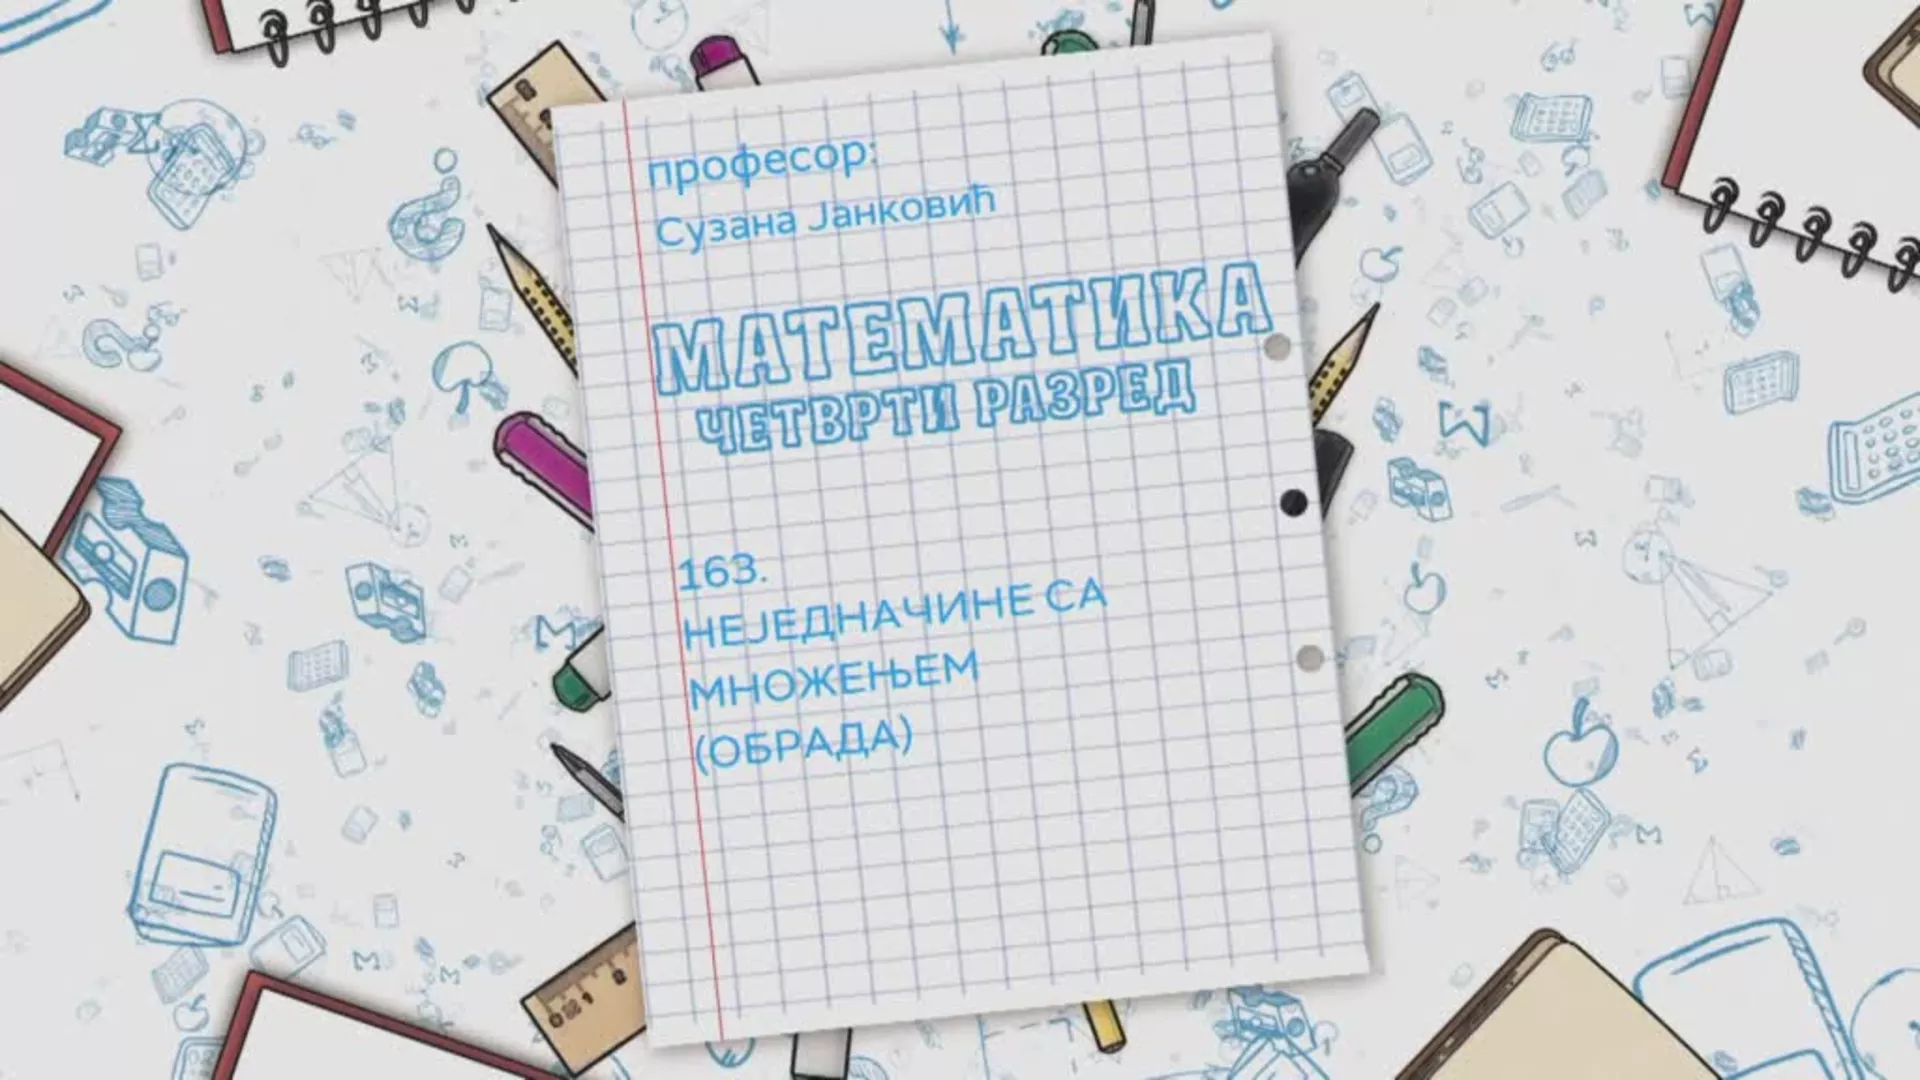 професор:
Сузана Јанковић
МАТЕМАТИКА
ЧЕТВРТИ РАЗРЕД
163.
НЕЈЕДНАЧИНЕ СА
МНОЖЕЊЕМ
(ОБРАДА)